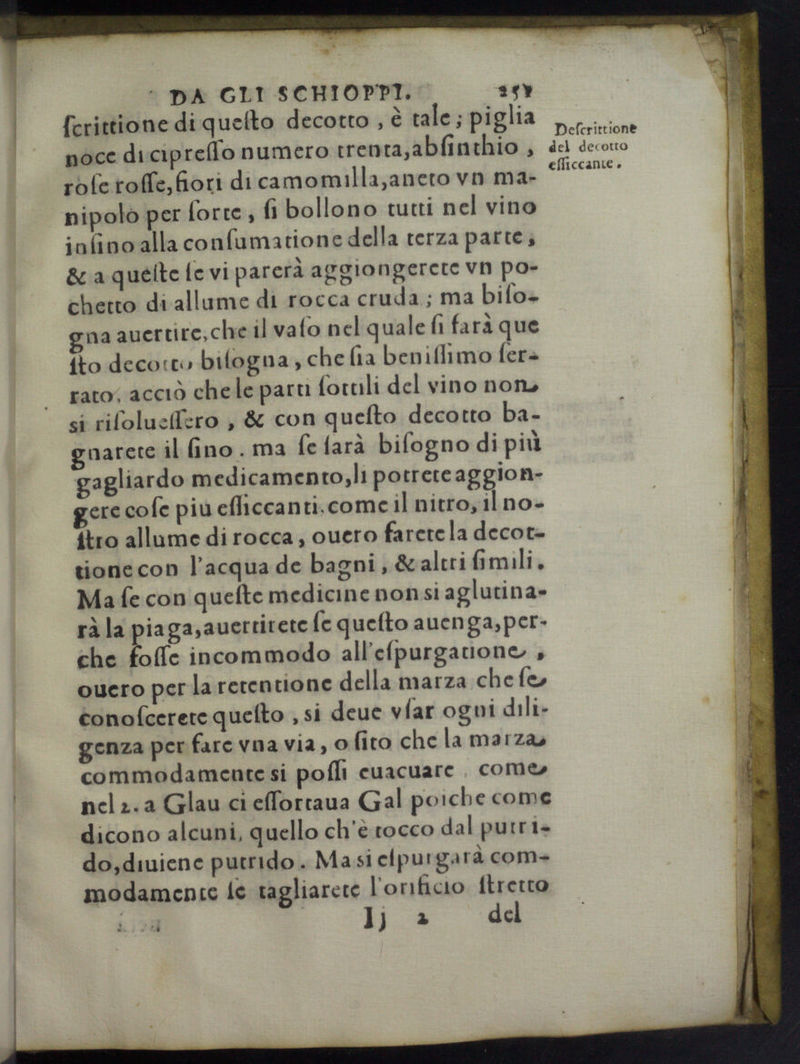 DA GLI SCHIOPPI. 251
ſcrittione di queſto decotto , è tale ; piglia
noce di cipreſſo numero trenta,abſinthio ,
roſe roſſe,fiori di camomilla,aneto vn ma-
nipolo per ſorte , ſi bollono tutti nel vino
inſino alla conſumatione della terza parte ,
& a queſte ſe vi parerà aggiongerete vn po-
chetto di allume di rocca cruda ; ma biſo-
gna auertire,che il vaſo nel quale ſi farà que
ſto decotto biſogna , che ſia beniſſimo ſer-
rato, acciò che le parti ſottili del vino non
si riſolueſſero , & con queſto decotto ba-
gnarete il ſino . ma ſe ſarà biſogno di più
gagliardo medicamento,li potrete aggion-
gere coſe piu eſſiccanti.come il nitro, il no-
ſtro allume di rocca , ouero farete la decot-
tione con l'acqua de bagni , & altri ſimili .
Ma ſe con queſte medicine non si aglutina-
rà la piaga,auertirete ſe queſto auenga,per-
che foſſe incommodo all'eſpurgatione ,
ouero per la retentione della marza che ſe
conoſcerete queſto , si deue vſar ogni dili-
genza per fare vna via , o ſito che la marza
commodamente si poſſi euacuare . come
nel 2. a Glau ci eſſortaua Gal poiche come
dicono alcuni, quello ch'è tocco dal putri-
do,diuiene putrido . Ma si eſpurgarà com-
modamente ſe tagliarete l'orificio ſtretto
Ij 2 del
Deſcrittione
del decotto
eſſiccante .